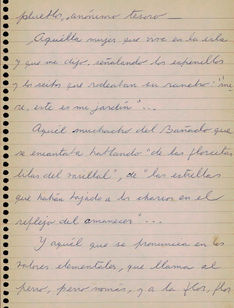 pueblo, anónimo tesoro —
¿Aquella mujer que vive en la isla
y que me dijo, señalando los espinillos
y los ceibos que rodeaban su rancho: "mi-
re, este es mi jardín"...
Aquél muchacho del Bañado que
se encantaba hablando "de las florcitas
lilas del                ", de "las estrellas
que habían bajado a los charcos en el
reflejo del amanecer"...
Y aquél que se pronuncia en los
valores elementales, que llama al
perro, perro nomás, y a la flor, flor